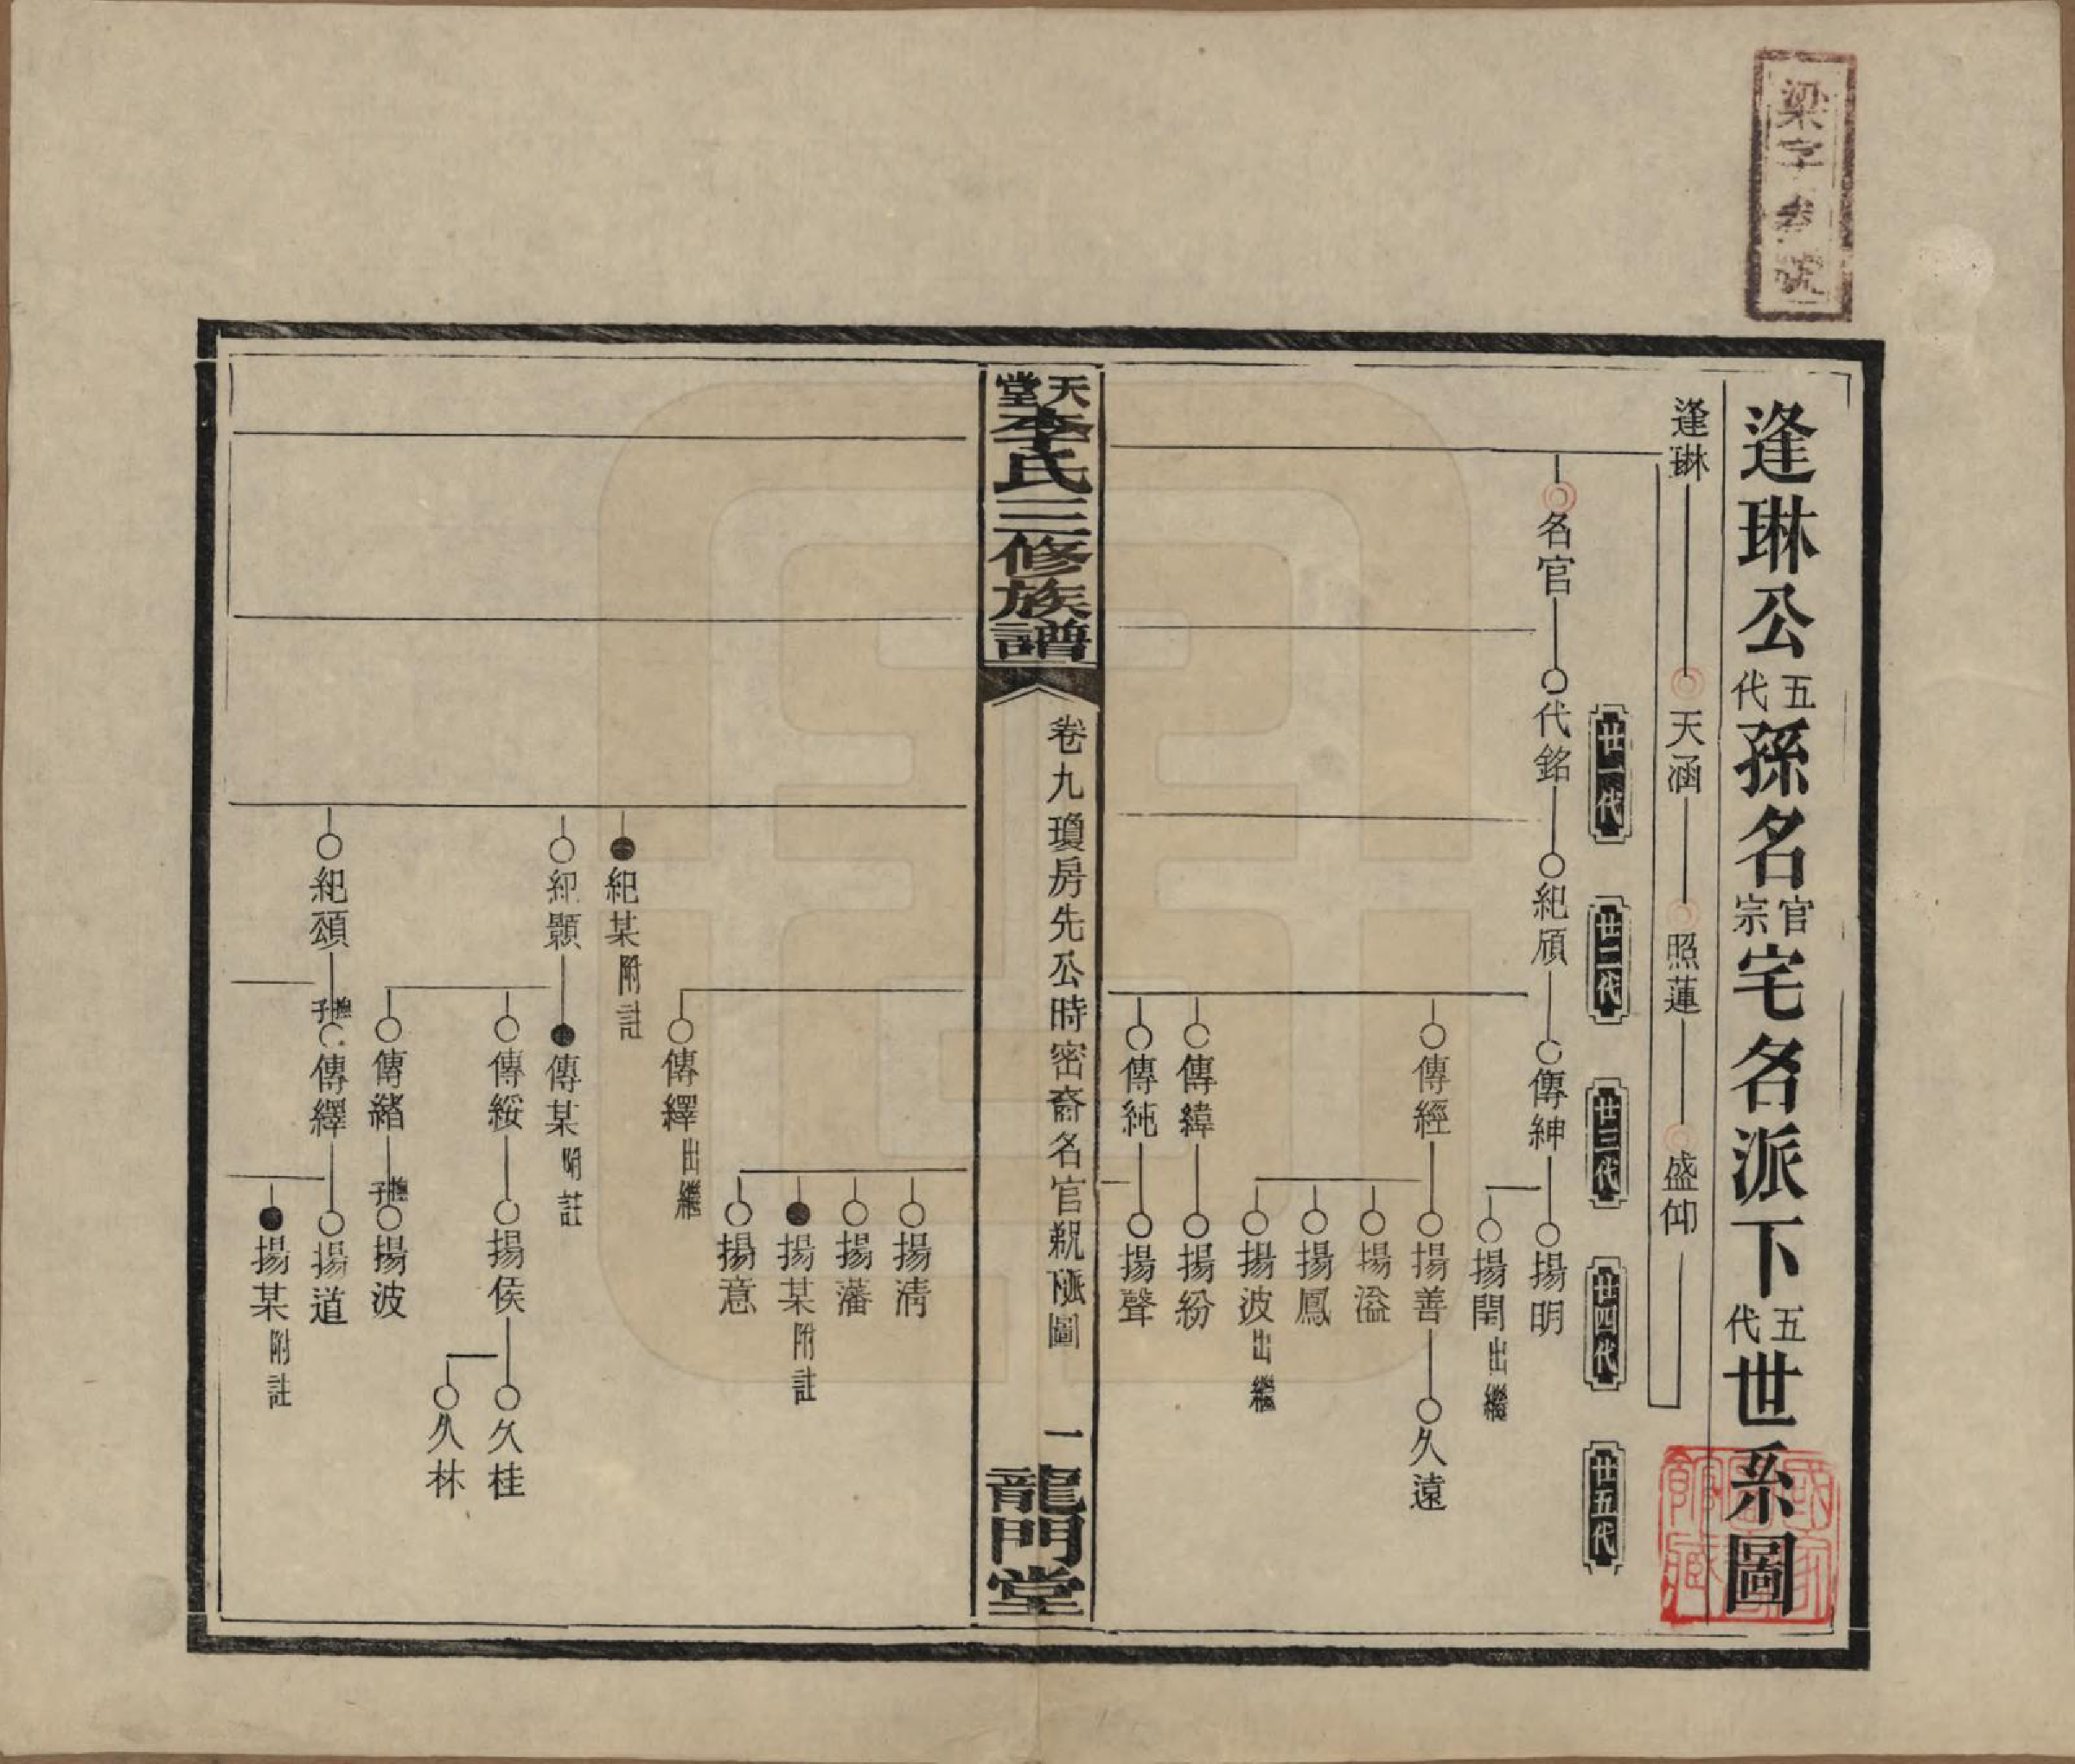 逢琳公五代孫名官宗宅名派下五代世系圖
逢琳 天涵 照蓮 盛仰
廿一代 廿二代 廿三代 廿四代 廿五代
名官 代銘 紀頎 傳紳 揚明
揚閏出繼
傳經 揚善 久遠
揚溢
揚鳳
揚波出繼
傳緯 揚紛
傳純 揚聲
天堂李氏三修族譜
卷九瓊房先公時密裔名官親派圖 一
龍門堂
揚清
揚藩
揚某附註
揚意
傳繹出繼
紀某附註
紀顥 傳某附註
傳綏 揚侯 久桂
久林
傳緒 撫子 揚波
紀頌 撫子 傳繹 揚道
揚某附註
梁字 號
國家圖書館藏